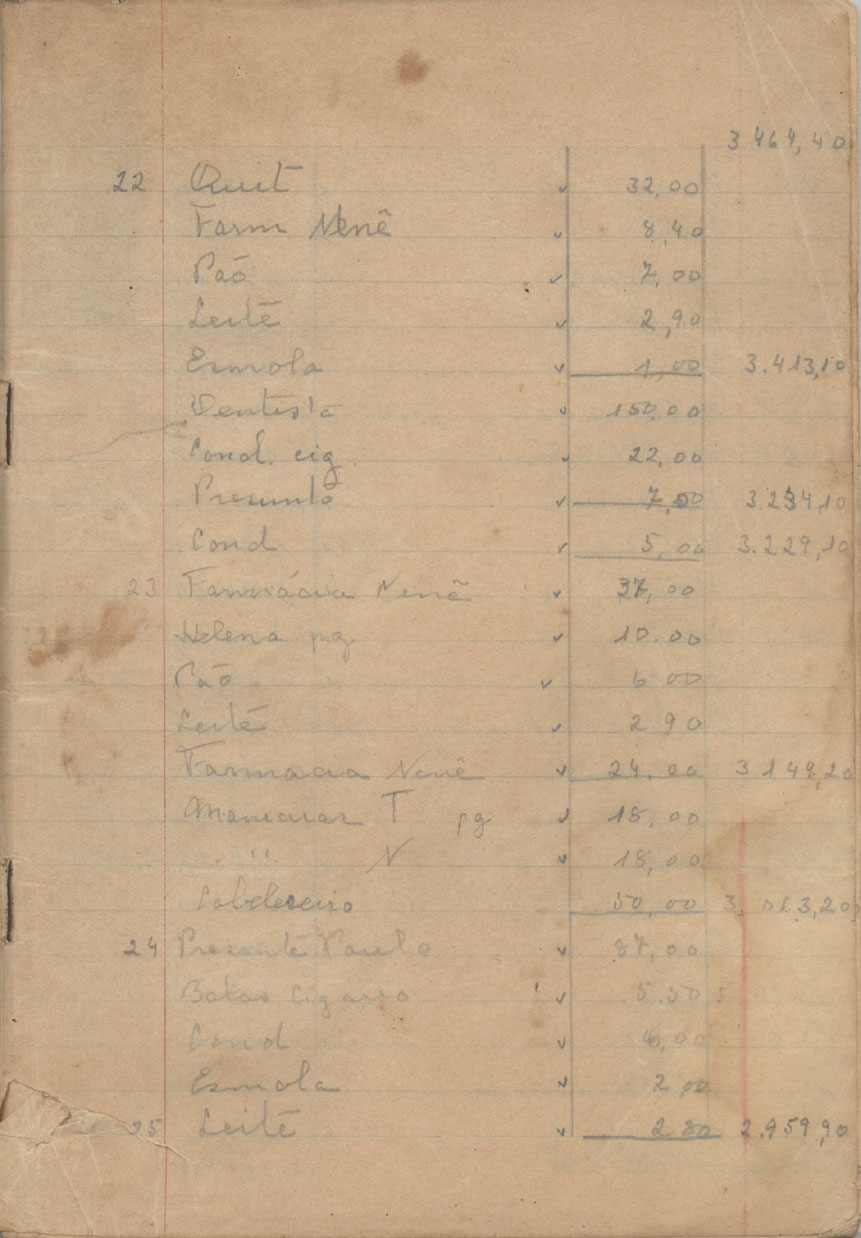 3.464,40
22 Quit v 32,00
Farm Nenê v 8,40
Pão v 7,00
Leite v 2,90
Esmola v 1,00 3.413,10
Dentista v 150,00
Cond. cig v 22,00
Presunto v 7,00 3.234,10
Cond v 5,00 3.229,10
23 Farmácia Nenê v 37,00
Helena pg v 10.00
Pão v 6 00
Leite v 2 90
Farmacia Nenê v 24,00 3 149,20
Manicurar T pg v 18,00
" N v 18,00
50,00 3.063,20
24 Presente Paulo v 87,00
Balas cigarro v 5.50
Cond v 6,00
Esmola v 2,00
25 Leite v 2 80 2.959,90